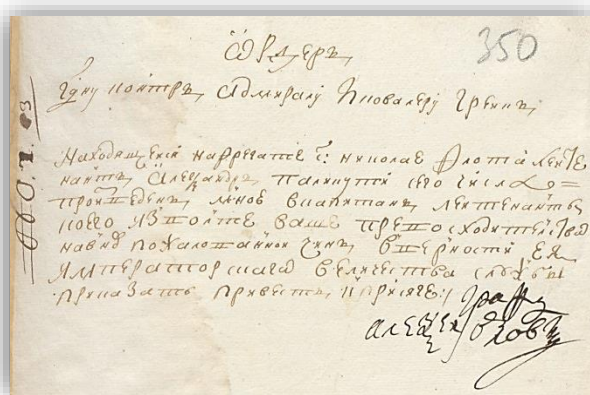 Ордеръ
350
Гдну контръ Адмиралу И ковалеру Грейгъ
Находящеися на фрегате С: николае Флота Лейте
нантъ Александръ паликутй сего числа
произведенъ мною в капитанъ леитенанты
коего изволте ваше превосходителство
на вновь пожалованной чинъ, в верности ЕЯ
ИМператорскаго величества службы
приказать привесть, к присяге:/
графъ
алексеи орловъ